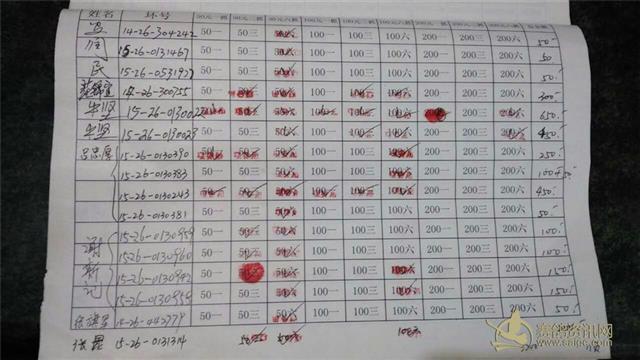 姓名 环号 50元一鸽 50元三鸽 50元六鸽 100元一鸽
14-26-304242 50一 50三 50六 100一 100三 100六 200一 200三 200六 50
15-26-0131467 50一 50三 50六 100一 100三 100六 200一 200三 200六 50
民 15-26-0531927 50一 50三 50六 100一 100三 100六 200一 200三 200六 50
14-26-300755 50一 50三 50六 100一 100三 100六 200一 200三 200六 300
坚 15-26-0130022 50一 50三 50六 100一 100三 100六 200一 200三 200六 650
坚 15-26-0130023 50一 50三 50六 100一 100三 100六 200一 200三 200六 450
吕忠厚 15-26-0130390 50一 50三 50六 100一 100三 100六 200一 200三 200六 250
15-26-0130383 50一 50三 50六 100一 100三 100六 200一 200三 200六 100+50
15-26-0130243 50一 50三 50六 100一 100三 100六 200一 200三 200六 450
15-26-0130381 50一 50三 50六 100一 100三 100六 200一 200三 200六 50
谢新记 15-26-0130959 50一 50三 50六 100一 100三 100六 200一 200三 200六 100
15-26-0130960 50一 50三 50六 100一 100三 100六 200一 200三 200六 100
15-26-0130942 50一 50三 50六 100一 100三 100六 200一 200三 200六 150
15-26-0130955 50一 50三 50六 100一 100三 100六 200一 200三 200六 150
15-26-442779 50一 50三 50六 100一 100三 100六 200一 200三 200六 50
张昆 15-26-0131314 50三 50六 100六
赛鸽资讯网
www.saige.com